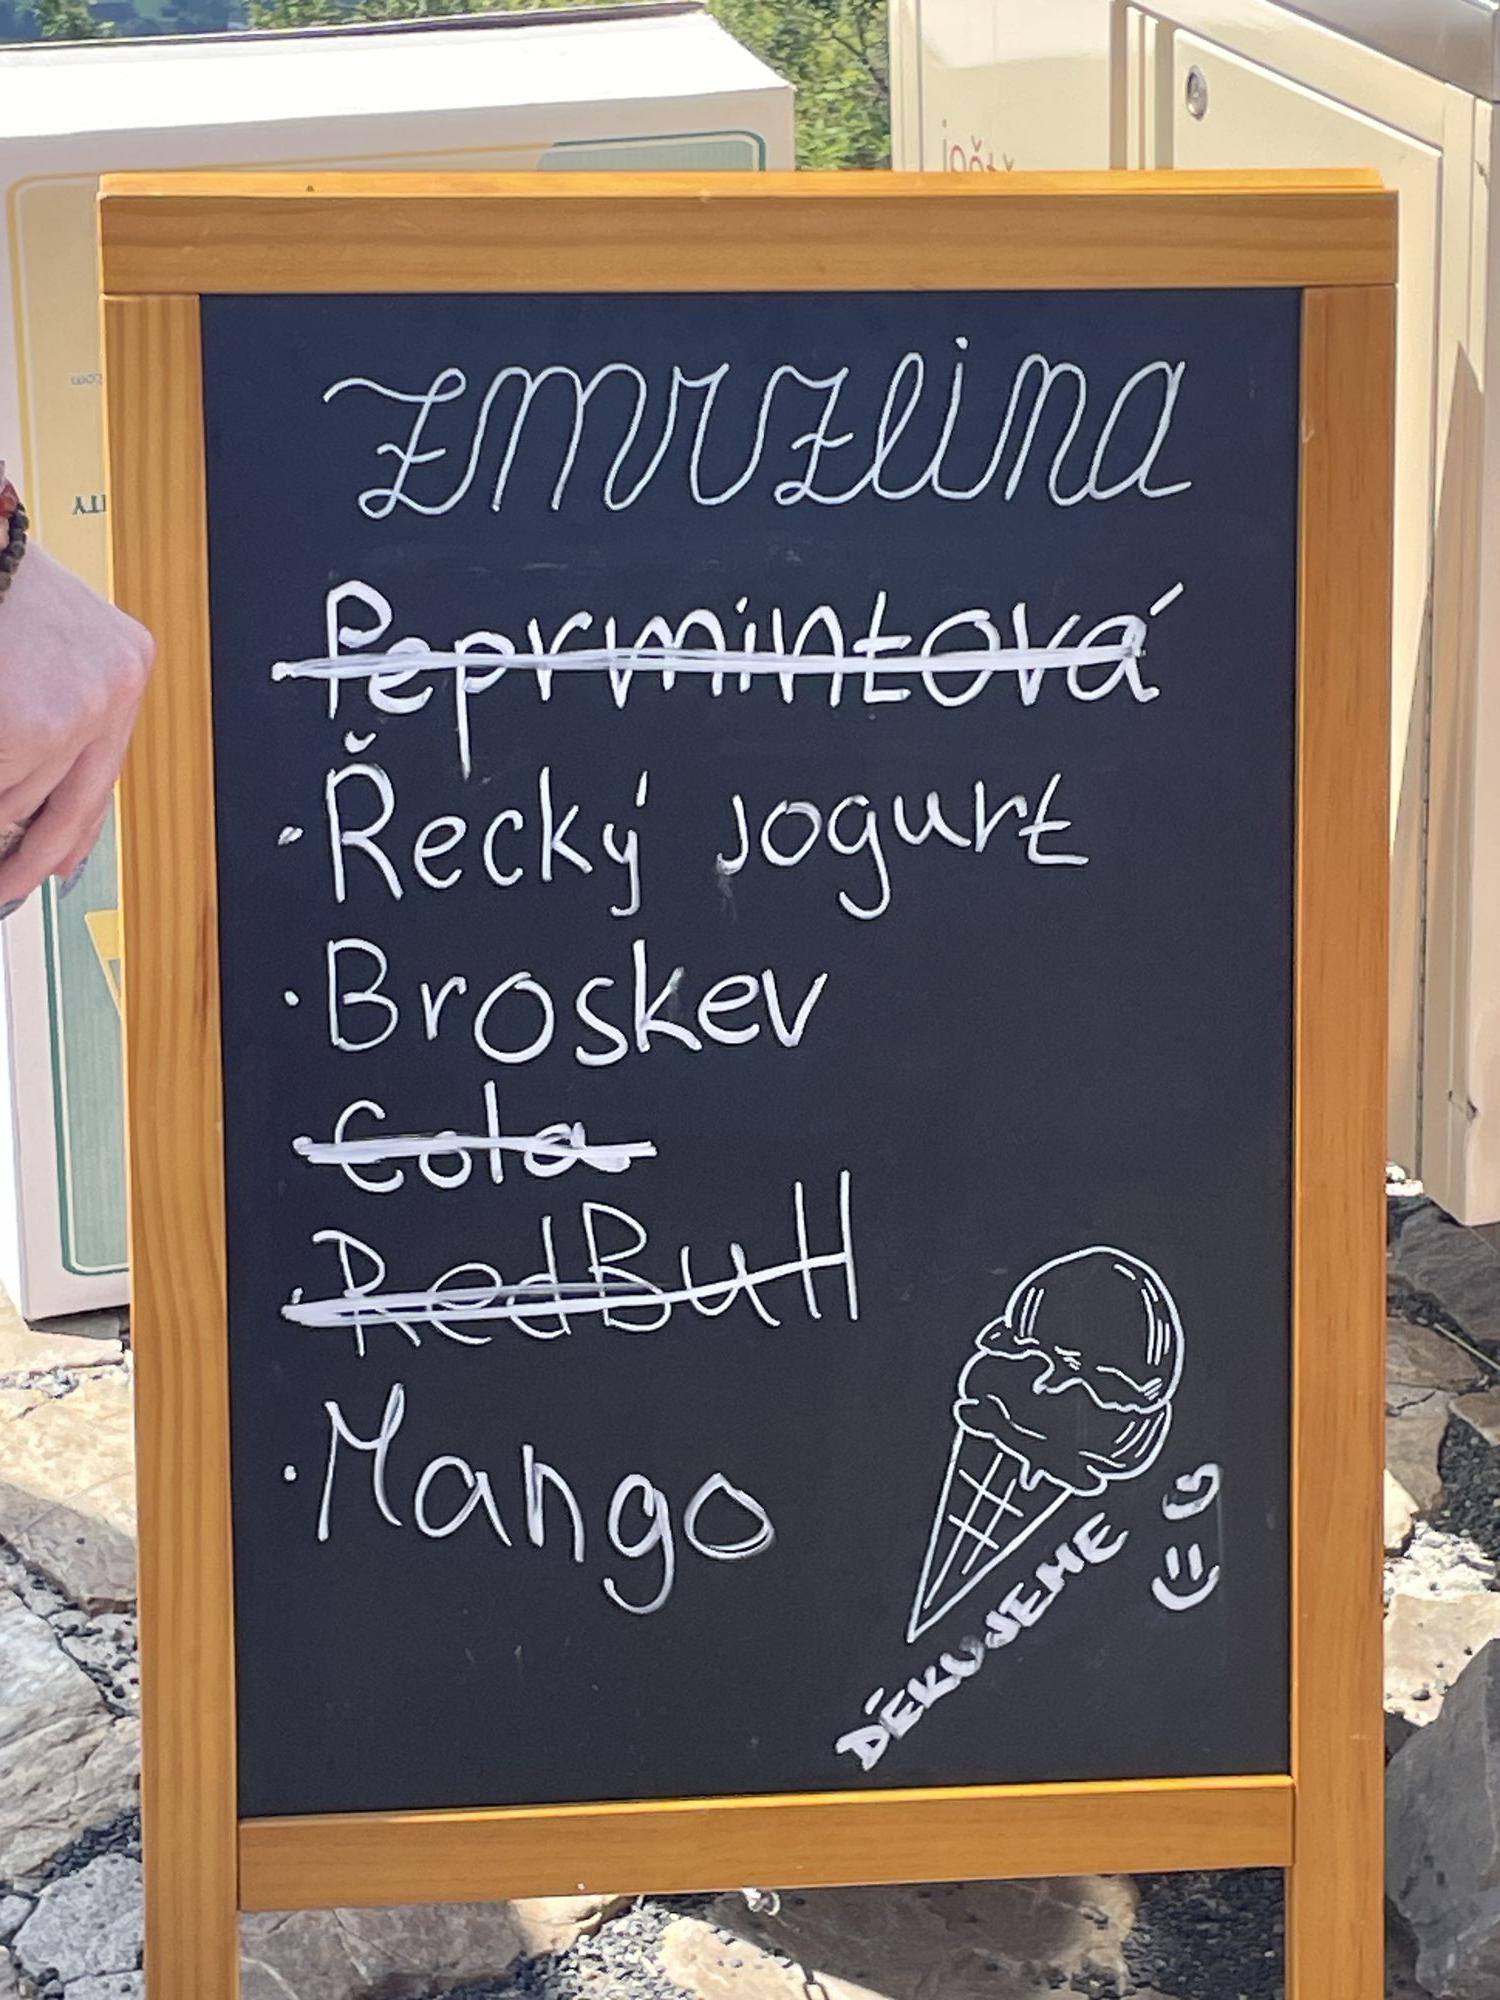 Zmrzlina
Peprmintová
• Řecký jogurt
• Broskev
Cola
RedBull
• Mango
DĚKUJEME